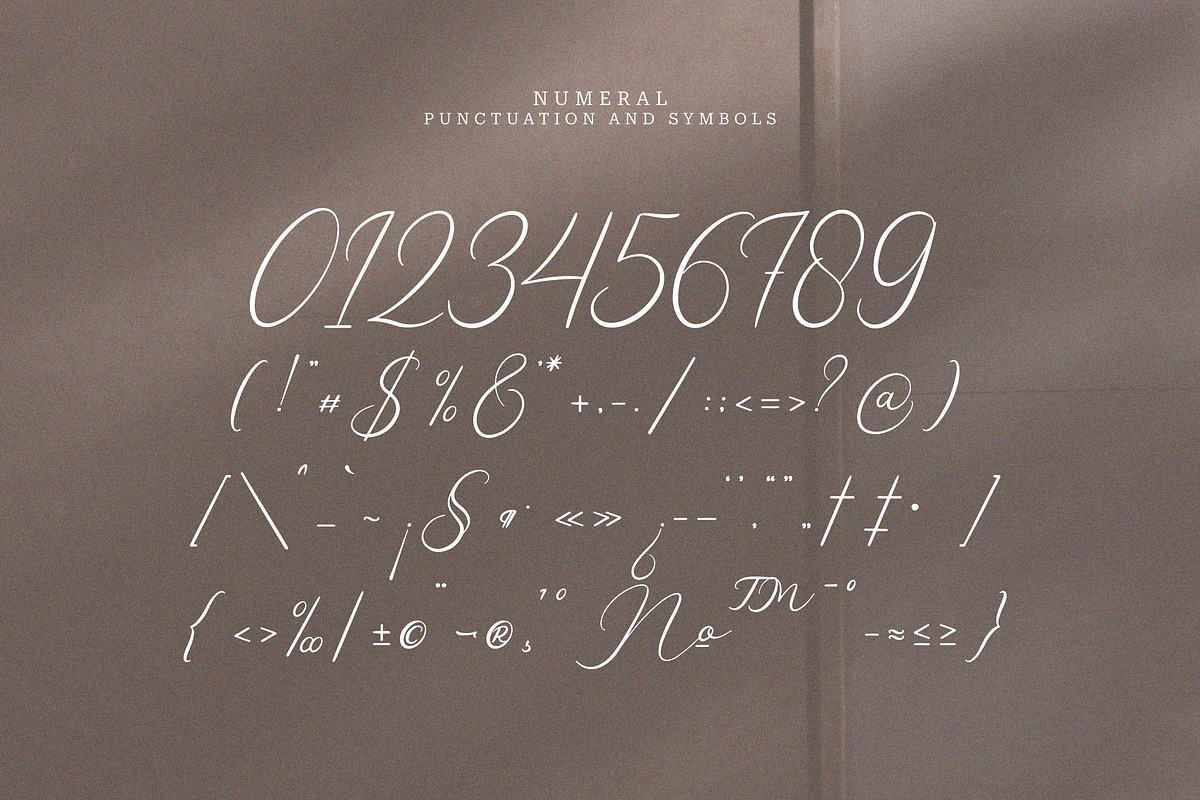 NUMERAL
PUNCTUATION AND SYMBOLS
0123456789
( ! " # $ % & ' * + , - . / : ; < = > ? @ )
[ / \ ^ ` _ ~ ¡ § ¶ · « » ¿ – — ‘ ’ ‚ “ ” „ † ‡ • ]
{ < > ‰ / ± © ¨ ¬ ® ¸ ¹ º № ™ ¯ ° − ≈ ≤ ≥ }